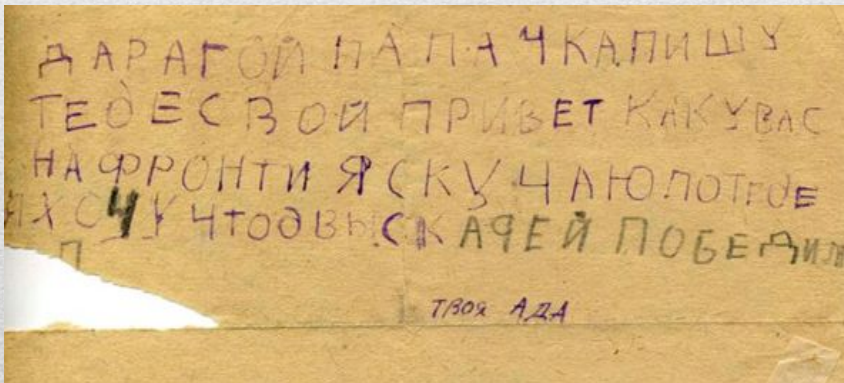 ДАРАГОЙ ПАПАЧКАПИШУ
ТЕбЕСВОЙ ПРИВЕТ КАКУВАС
НАФРОНТИ ЯСКУЧАЮПОТЕбЕ
ЯХОЧУ ЧТОбВЫСКАЧЕЙ ПОБЕДИЛИ
П
ТВОЯ АДА